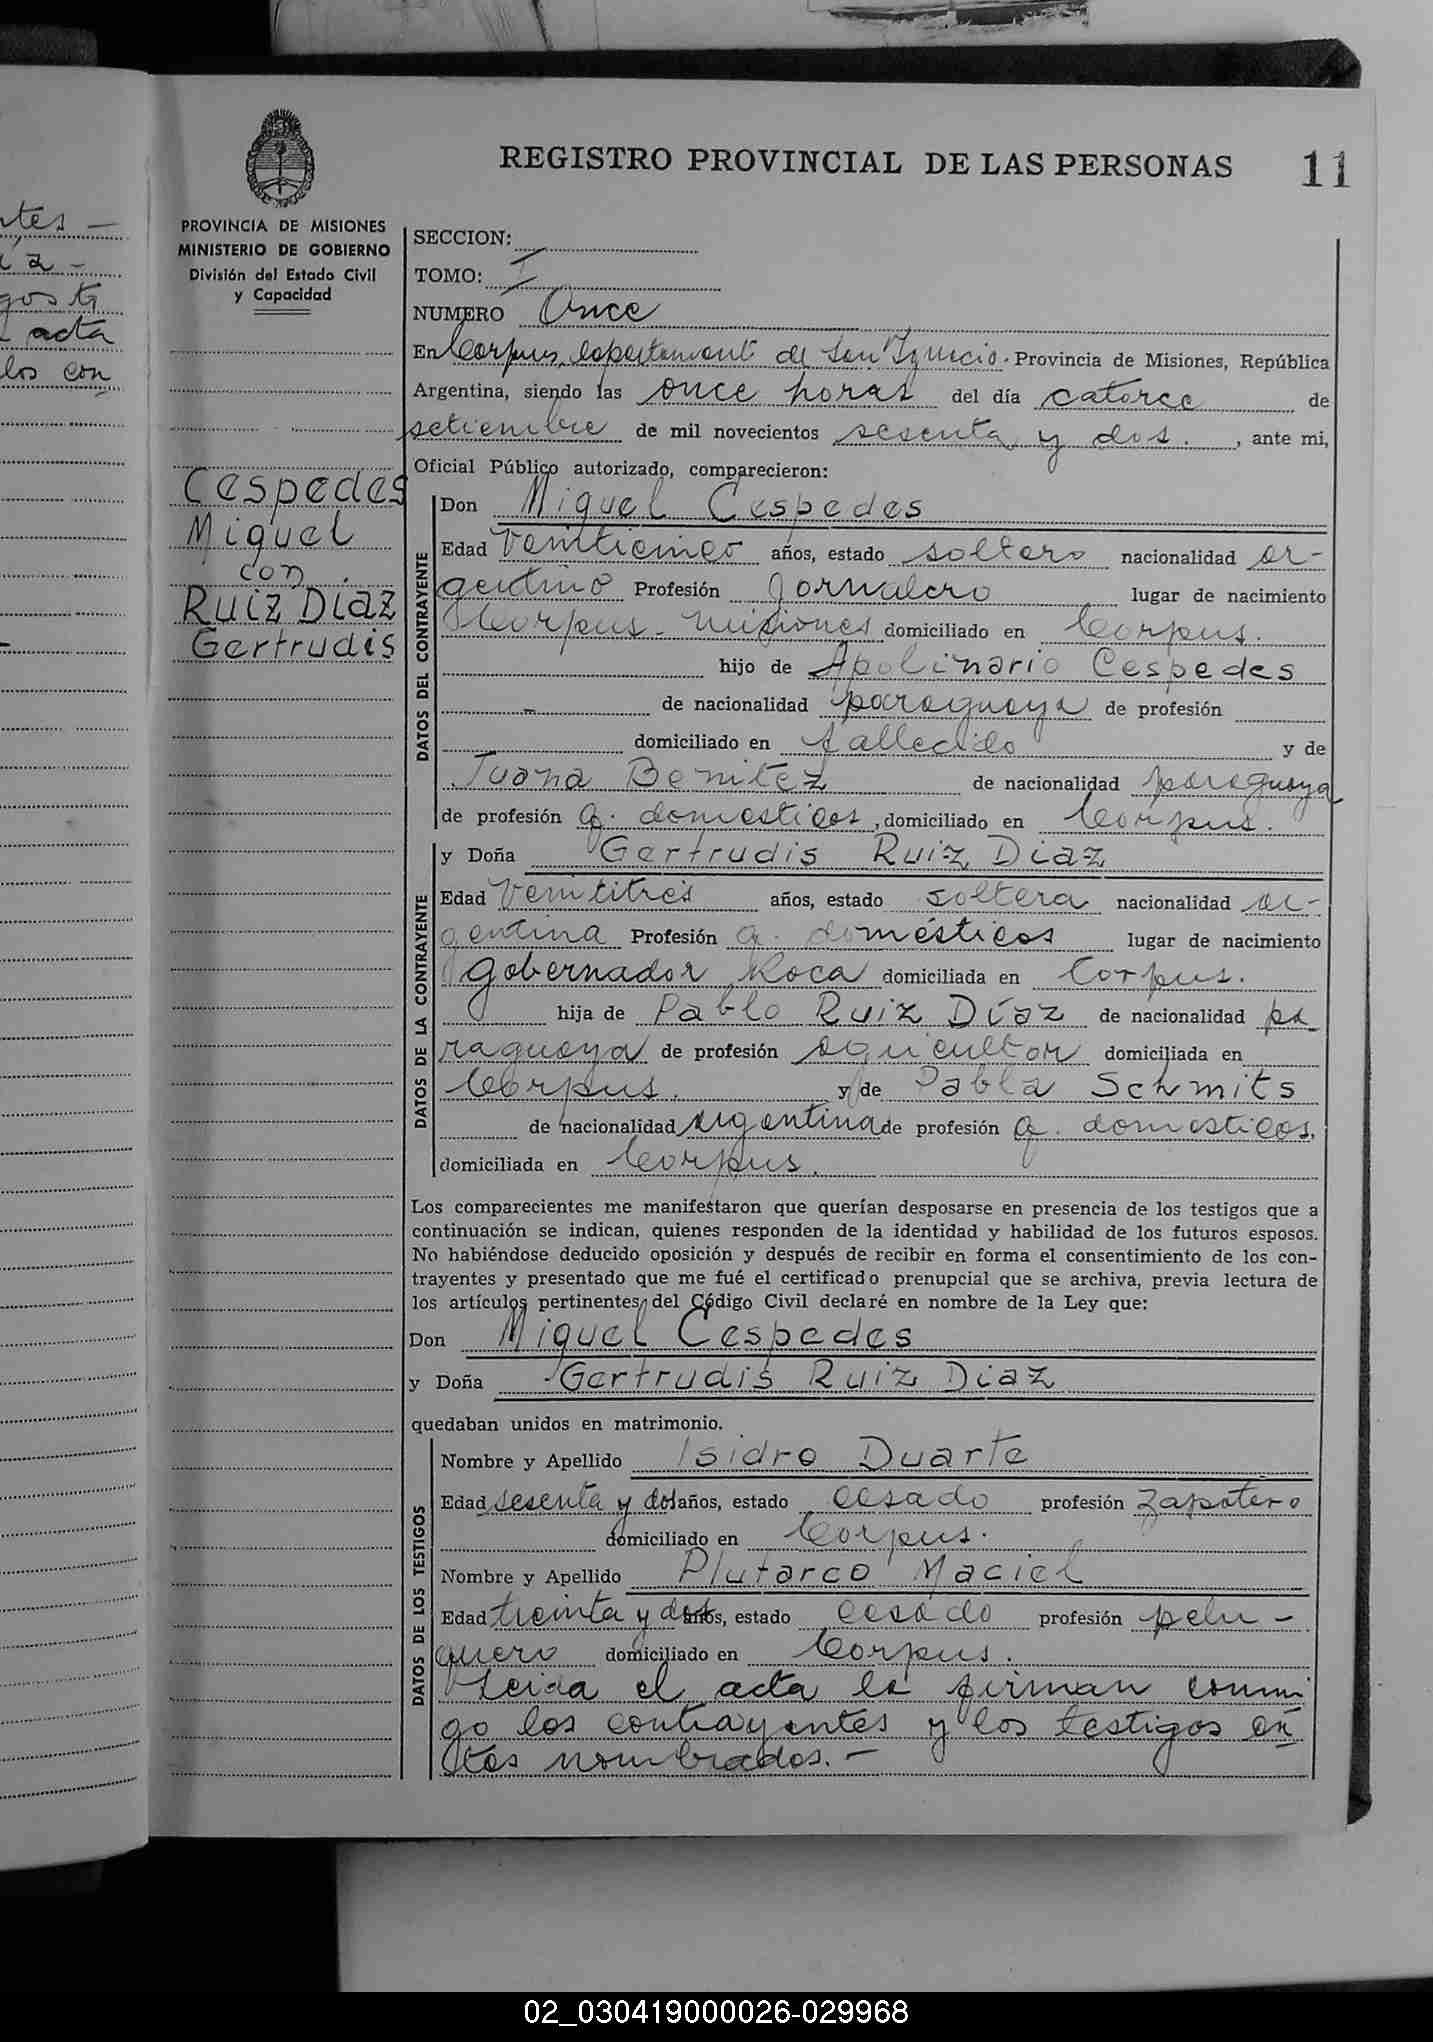 ntes -
ia -
gosti
acta
los con
REGISTRO PROVINCIAL DE LAS PERSONAS 11
PROVINCIA DE MISIONES
MINISTERIO DE GOBIERNO
División del Estado Civil
y Capacidad
Cespedes
Miguel
con
Ruiz Diaz
Gertrudis
SECCION:
TOMO: I
NUMERO Once
En Corpus, departamento de San Ignacio. Provincia de Misiones, República
Argentina, siendo las once horas del día catorce de
setiembre de mil novecientos sesenta y dos. , ante mi,
Oficial Público autorizado, comparecieron:
DATOS DEL CONTRAYENTE
Don Miguel Cespedes
Edad Veinticinco años, estado soltero nacionalidad ar-
gentino Profesión Jornalero lugar de nacimiento
Corpus - Misiones domiciliado en Corpus.
hijo de Apolinario Cespedes
- de nacionalidad paraguaya de profesión
domiciliado en fallecido y de
Juana Benitez de nacionalidad paraguaya
de profesión q. domesticos, domiciliado en Corpus.
DATOS DE LA CONTRAYENTE
y Doña Gertrudis Ruiz Diaz
Edad Veintitrés años, estado soltera nacionalidad ar-
gentina Profesión q. domésticos lugar de nacimiento
gobernador Roca domiciliada en Corpus.
hija de Pablo Ruiz Díaz de nacionalidad pa
raguaya de profesión agricultor domiciliada en
Corpus. y de Pabla Schmits
de nacionalidad argentina de profesión q. domesticos,
domiciliada en Corpus.
Los comparecientes me manifestaron que querían desposarse en presencia de los testigos que a
continuación se indican, quienes responden de la identidad y habilidad de los futuros esposos.
No habiéndose deducido oposición y después de recibir en forma el consentimiento de los con-
trayentes y presentado que me fué el certificado prenupcial que se archiva, previa lectura de
los artículos pertinentes del Código Civil declaré en nombre de la Ley que:
Don Miguel Cespedes
y Doña Gertrudis Ruiz Diaz
quedaban unidos en matrimonio.
DATOS DE LOS TESTIGOS
Nombre y Apellido Isidro Duarte
Edad sesenta y dos años, estado casado profesión zapatero
domiciliado en Corpus.
Nombre y Apellido Plutarco Maciel
Edad treinta y dos años, estado casado profesión pelu-
quero domiciliado en Corpus.
Leida el acta la firman conmi
go los contrayentes y los testigos an
tes nombrados. -
02_030419000026-029968